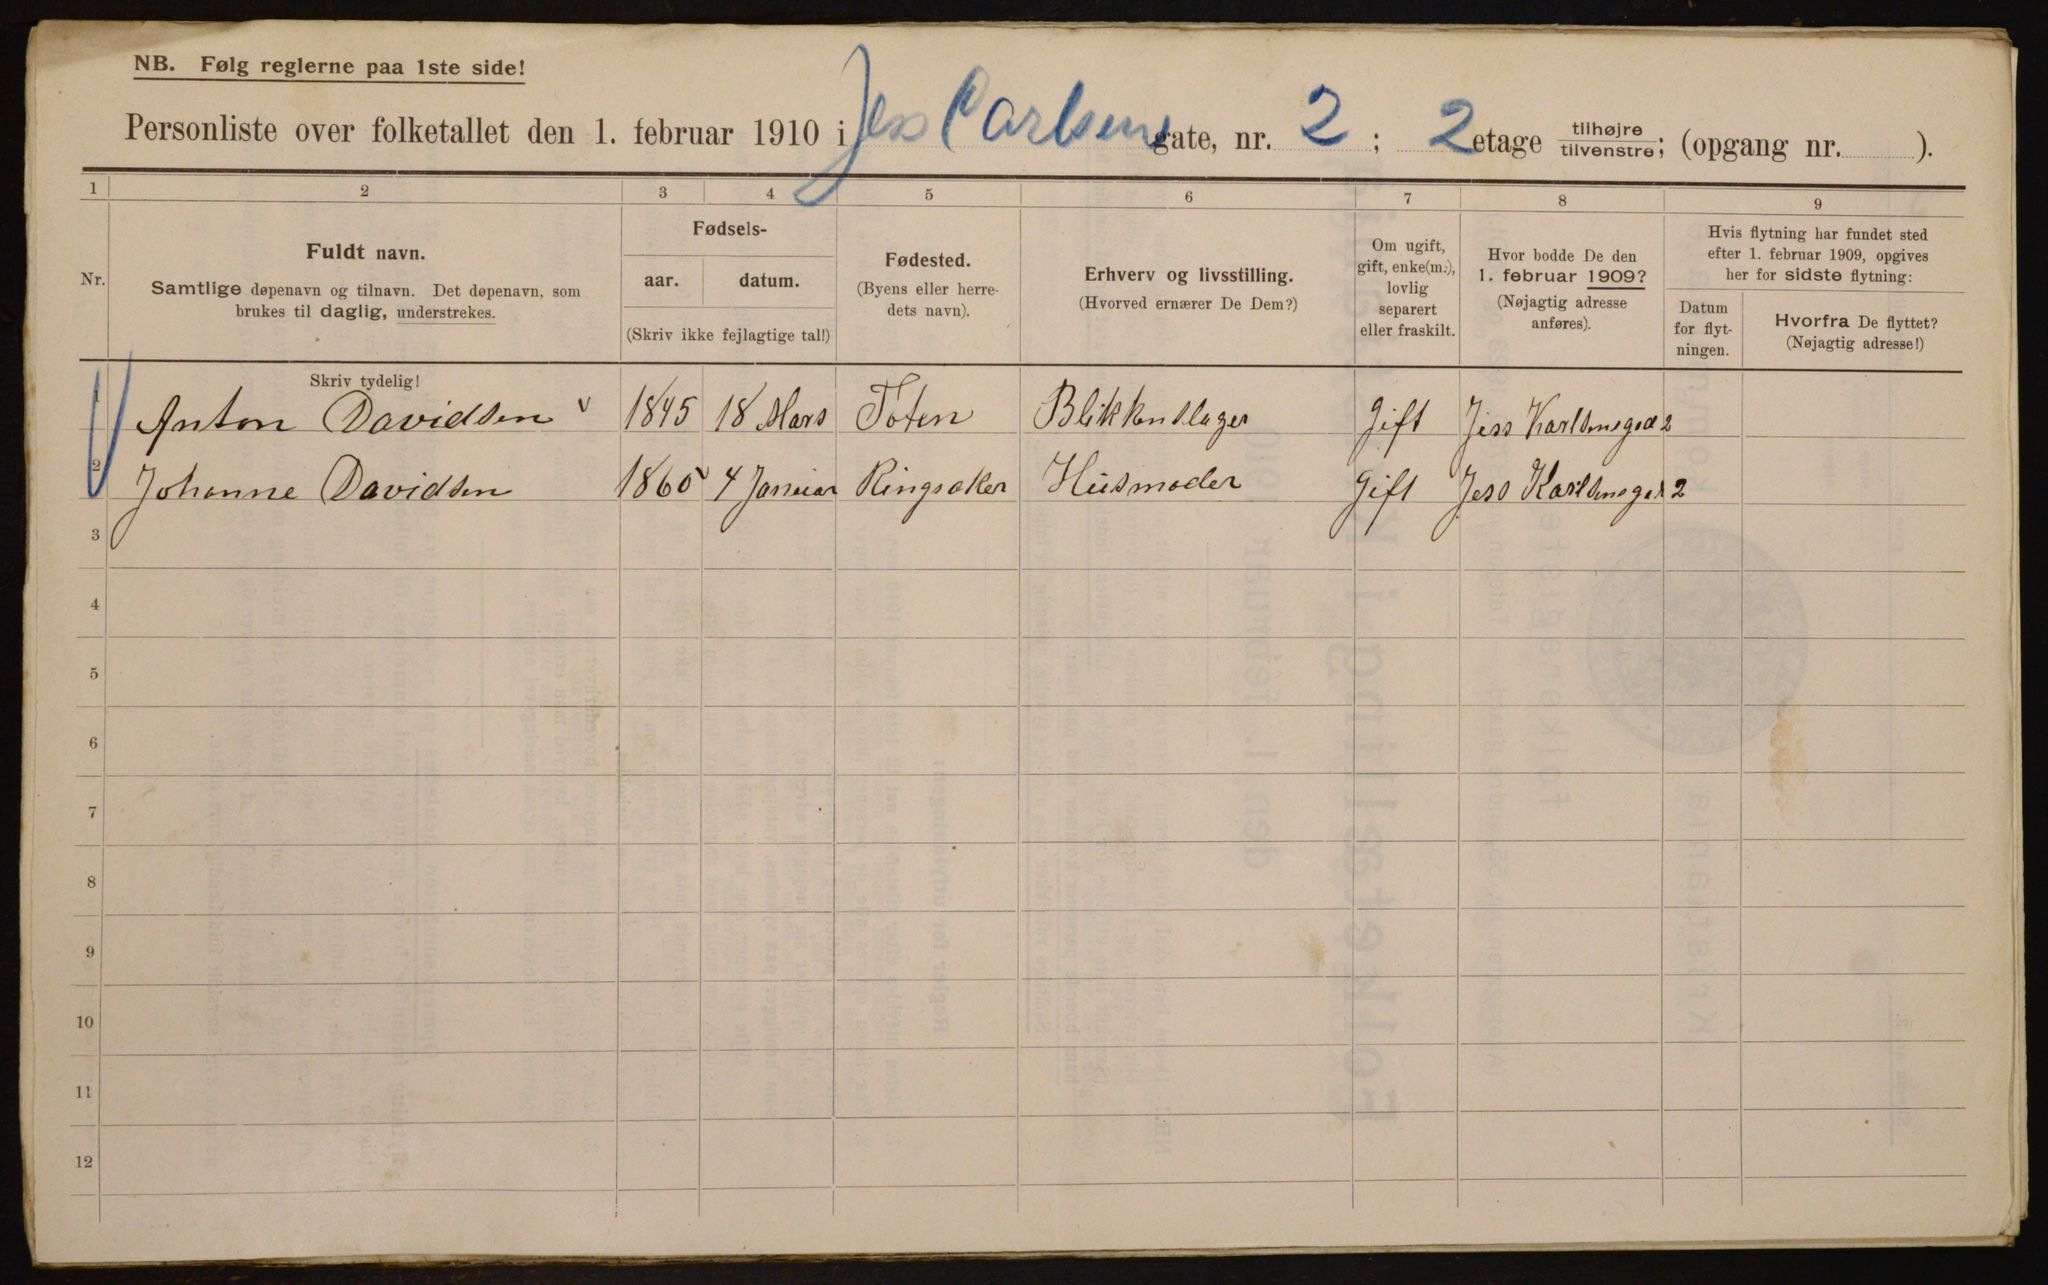 NB. Følg reglerne paa 1ste side!
Personliste over folketallet den 1. februar 1910 i Jess Carlsens gate, nr. 2 ; 2 etage tilhøjre/tilvenstre; (opgang nr. ).
1 2 3 4 5 6 7 8 9
Nr.
Fuldt navn.
Samtlige døpenavn og tilnavn. Det døpenavn, som
brukes til daglig, understrekes.
Fødsels-
aar. datum.
(Skriv ikke fejlagtige tal!)
Fødested.
(Byens eller herre-
dets navn).
Erhverv og livsstilling.
(Hvorved ernærer De Dem?)
Om ugift,
gift, enke(m.),
lovlig
separert
eller fraskilt.
Hvor bodde De den
1. februar 1909?
(Nøjagtig adresse
anføres).
Hvis flytning har fundet sted
efter 1. februar 1909, opgives
her for sidste flytning:
Datum
for flyt-
ningen.
Hvorfra De flyttet?
(Nøjagtig adresse!)
Skriv tydelig!
Anton Davidsen 1845 18 Mars Toten Blikkenslager Gift Jess Karlsensgad 2
2 Johanne Davidsen 1860 4 Januar Ringsaker Husmoder Gift Jess Karlsensgad 2
3
4
5
6
7
8
9
10
11
12